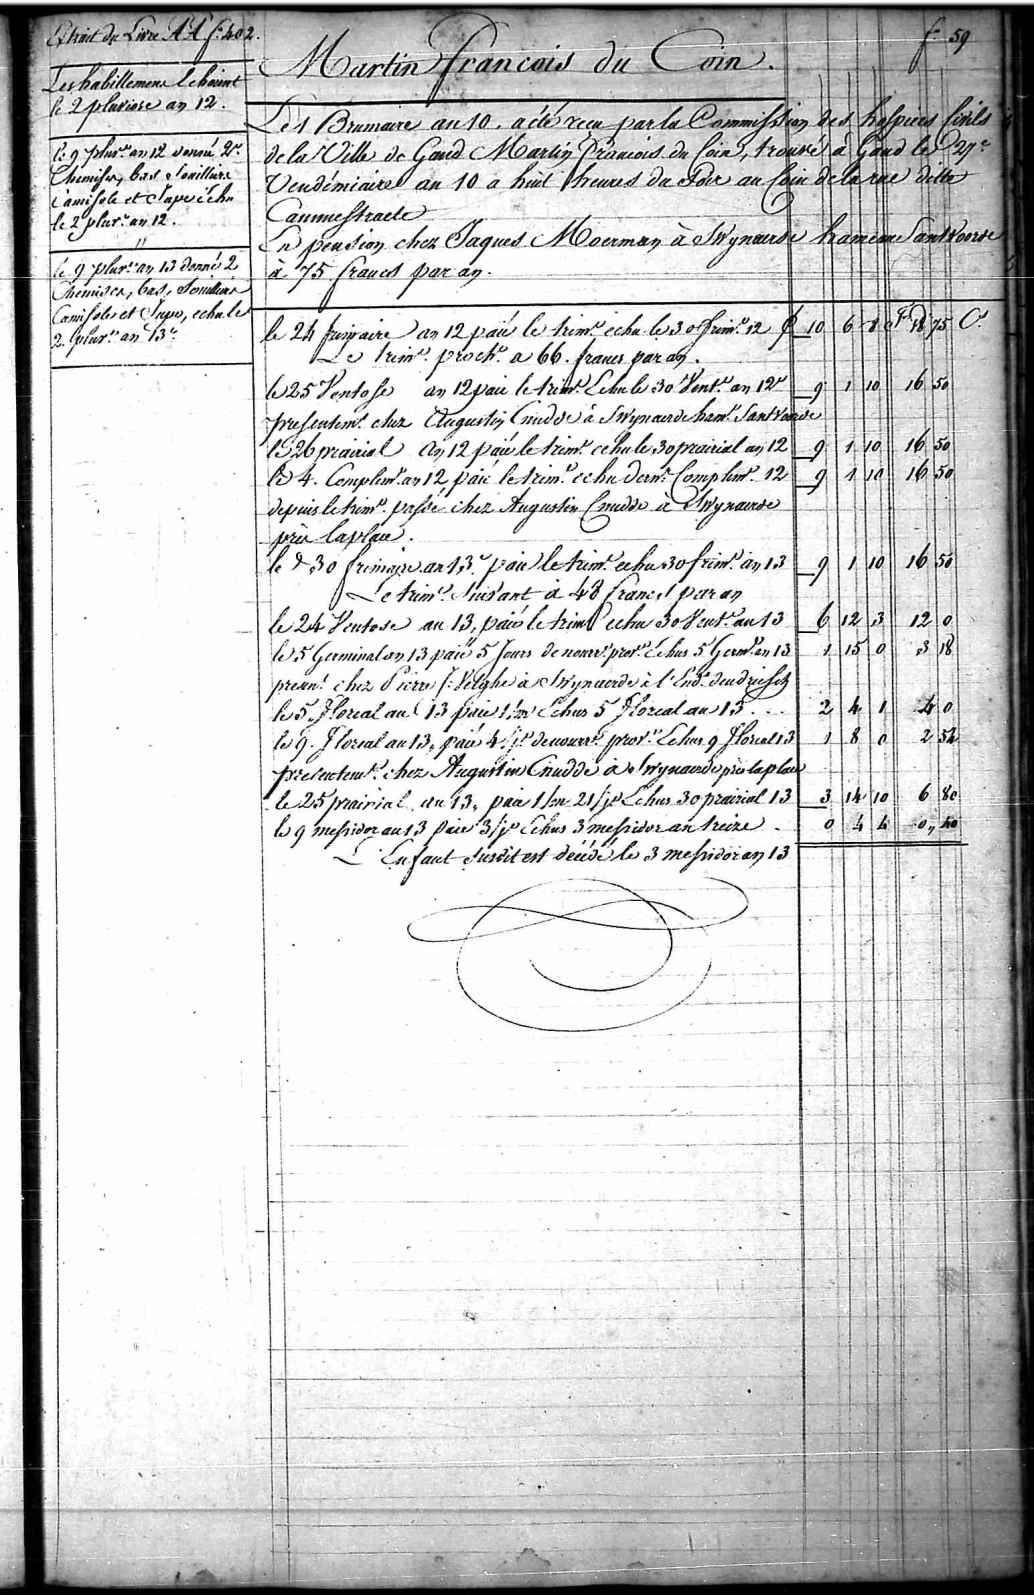 Extrait du Livre AA f. 402.
f. 59
Martin francois du Coin.
Les habillemens Echoient
le 2 pluviose an 12.
le 9 pluv.e an 12 donné 2.
Chemises, bas, Souilliers
Camisole et Jupe échu
le 2 pluv.e an 12.
"
le 9 pluv.e an 13 donné 2
Chemises, bas, Souilliers
Camisole et Jupe, echu le
2. pluv.e an 13.e
Le 1 Brumaire an 10. a été recu par la Commission des hospices Civils
de la Ville de Gand Martin francois du Coin, trouvé à Gand le
Vendémiaire an 10 a huit heures du Soir au Coin de la rue ditte
Cammestraete
En pension chez Jaques Moerman à Swynaerde hameau Santvoorde
à 75 francs par an.
le 24 frimaire an 12 paié le trim.e echu le 30 frim.e 12 10 6 8 18 75 C.s
Le trim.e proch.n a 66. francs par an.
le 25 Ventose an 12 paié le trim.e Echu le 30 Vent.e an 12.e 9 1 10 16 50
presentem.t chez Augustin Cnudde à Swynaerde ham.u Santvoorde
le 26 prairial an 12 paié le trim.e echu le 30 prairial an 12 9 1 10 16 50
le 4. Complim.e an 12 paié le trim.e echu dern.r Complim.e 12 9 1 10 16 50
depuis le trim.e passé chez Augustin Cnudde à Swynaerde
près laplace.
le 30 frimaire an 13.e paié le trim.e echu 30 frim.e an 13 9 1 10 16 50
Le trim.e Suivant à 48 francs par an
le 24 Ventose an 13, paié le trim.e echu 30 Vent.e an 13 6 12 3 12 0
le 5 Germinal an 13 paié 5 Jours de nourr.e prov.e Echus 5 Germ.l an 13 1 15 0 3 18
presen.t chez Pierre f: Velghe à Swynaerde à l'End.t den driesch
le 5. floreal an 13 paié 1/m Echus 5 floreal an 13 . . . 2 4 1 4 0
le 9. floreal an 13, paié 4/j.s de nourr.e prov.e Echus 9 floreal 13 1 8 0 2 54
presentem.t chez Augustin Cnudde à Swynaerde près laplace
le 25 prairial an 13, paié 1/m 21/j.s Echus 30 prairial 13 3 14 10 6 80
le 9 messidor an 13 paié 3/j.s Echus 3 messidor an treize . 0 4 4 0, 40
L'Enfant Susdit est décédé le 3 messidor an 13